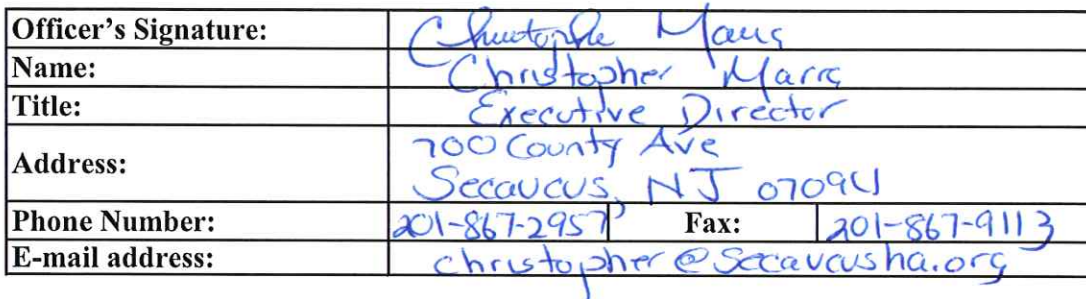 Officer's Signature: Christopher Marra
Name: Christopher Marra
Title: Executive Director
Address: 700 County Ave
Secaucus, NJ 07094
Phone Number: 201-867-2957 Fax: 201-867-9113
E-mail address: christopher@secaucusha.org